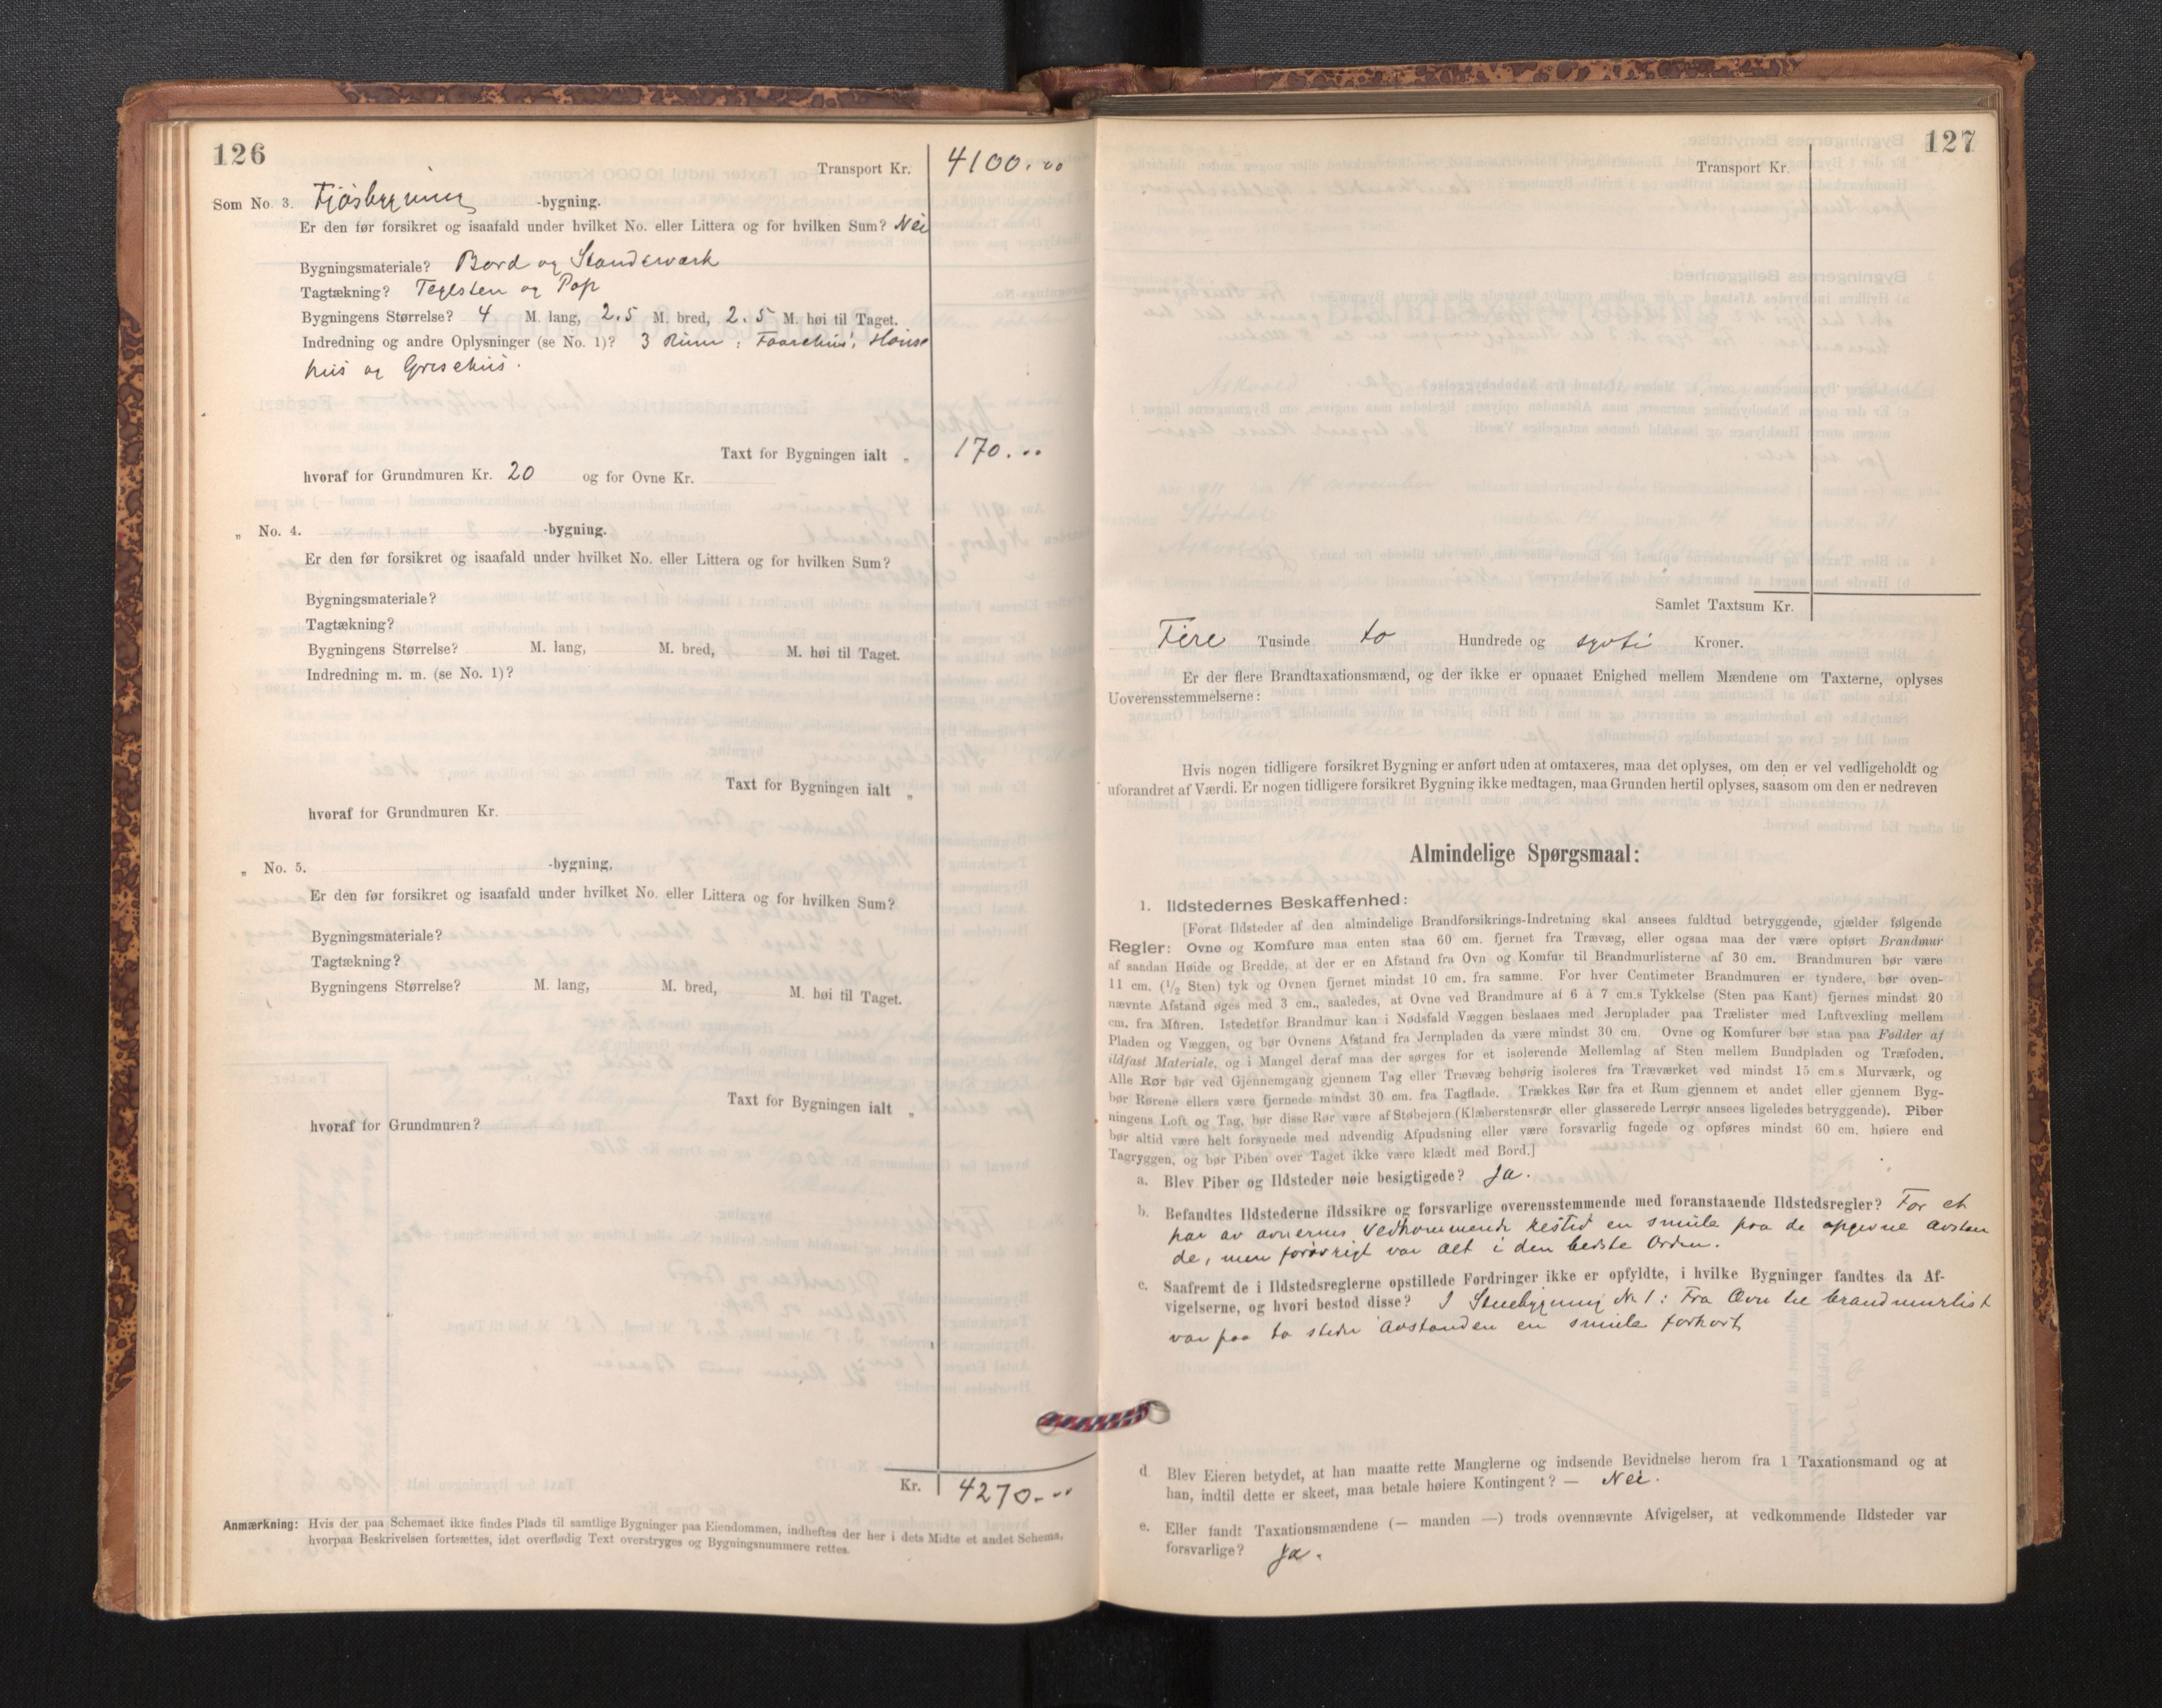 126
Transport Kr. 4100.00
Som No. 3. Fjøsbygning -bygning.
Er den før forsikret og isaafald under hvilket No. eller Littera og for hvilken Sum? Nei
Bygningsmateriale? Bord og Standerværk
Tagtækning? Teglsten og Pap
Bygningens Størrelse? 4 M. lang, 2.5 M. bred, 2.5 M. høi til Taget.
Indredning og andre Oplysninger (se No. 1)? 3 Rum: Faarehus, Hønse
hus og Grisehus.
Taxt for Bygningen ialt „ 170...
hvoraf for Grundmuren Kr. 20 og for Ovne Kr.
„ No. 4. -bygning.
Er den før forsikret og isaafald under hvilket No. eller Littera og for hvilken Sum?
Bygningsmateriale?
Tagtækning?
Bygningens Størrelse? M. lang, M. bred, M. høi til Taget.
Indredning m. m. (se No. 1)?
Taxt for Bygningen ialt „
hvoraf for Grundmuren Kr.
„ No. 5. -bygning,
Er den før forsikret og isaafald under hvilket No. eller Littera og for hvilken Sum?
Bygningsmateriale?
Tagtækning?
Bygningens Størrelse? M. lang, M. bred, M. høi til Taget.
Taxt for Bygningen ialt „
hvoraf for Grundmuren?
Kr. 4270...
Anmærkning: Hvis der paa Schemaet ikke findes Plads til samtlige Bygninger paa Eiendommen, indheftes der her i dets Midte et andet Schema,
hvorpaa Beskrivelsen fortsættes, idet overflødig Text overstryges og Bygningsnummere rettes.
127
Transport Kr.
Samlet Taxtsum Kr.
Fire Tusinde to Hundrede og sytti Kroner.
Er der flere Brandtaxationsmænd, og der ikke er opnaaet Enighed mellem Mændene om Taxterne, oplyses
Uoverensstemmelserne:
Hvis nogen tidligere forsikret Bygning er anført uden at omtaxeres, maa det oplyses, om den er vel vedligeholdt og
uforandret af Værdi. Er nogen tidligere forsikret Bygning ikke medtagen, maa Grunden hertil oplyses, saasom om den er nedreven
Almindelige Spørgsmaal:
1. Ildstedernes Beskaffenhed:
[Forat Ildsteder af den almindelige Brandforsikrings-Indretning skal ansees fuldtud betryggende, gjælder følgende
Regler: Ovne og Komfure maa enten staa 60 cm. fjernet fra Trævæg, eller ogsaa maa der være opført Brandmur
af saadan Høide og Bredde, at der er en Afstand fra Ovn og Komfur til Brandmurlisterne af 30 cm. Brandmuren bør være
11 cm. (1/2 Sten) tyk og Ovnen fjernet mindst 10 cm. fra samme. For hver Centimeter Brandmuren er tyndere, bør oven-
nævnte Afstand øges med 3 cm., saaledes, at Ovne ved Brandmure af 6 à 7 cm.s Tykkelse (Sten paa Kant) fjernes mindst 20
cm. fra Muren. Istedetfor Brandmur kan i Nødsfald Væggen beslaaes med Jernplader paa Trælister med Luftvexling mellem
Pladen og Væggen, og bør Ovnens Afstand fra Jernpladen da være mindst 30 cm. Ovne og Komfurer bør staa paa Fødder af
ildfast Materiale, og i Mangel deraf maa der sørges for et isolerende Mellemlag af Sten mellem Bundpladen og Træfoden.
Alle Rør bør ved Gjennemgang gjennem Tag eller Trævæg behørig isoleres fra Træværket ved mindst 15 cm s Murværk, og
bør Rørene ellers være fjernede mindst 30 cm. fra Tagflade. Trækkes Rør fra et Rum gjennem et andet eller gjennem Byg-
ningens Loft og Tag, bør disse Rør være af Støbejern (Klæberstensrør eller glasserede Lerrør ansees ligeledes betryggende). Piber
bør altid være helt forsynede med udvendig Afpudsning eller være forsvarlig fugede og opføres mindst 60 cm. høiere end
Tagryggen, og bør Piben over Taget ikke være klædt med Bord.]
a. Blev Piber og Ildsteder nøie besigtigede? Ja.
b. Befandtes Ildstederne ildssikre og forsvarlige overensstemmende med foranstaaende Ildstedsregler? For et
par av ovnernes vedkommende en smule paa de opgivne avstan
de, men forøvrigt var alt i den bedste Orden.
c. Saafremt de i Ildstedsreglerne opstillede Fordringer ikke er opfyldte, i hvilke Bygninger fandtes da Af-
vigelserne, og hvori bestod disse? I Stuebygning No 1: Fra Ovn til brandmurlist
var paa to steder avstanden en smule forkort
d Blev Eieren betydet, at han maatte rette Manglerne og indsende Bevidnelse herom fra 1 Taxationsmand og at
han, indtil dette er skeet, maa betale høiere Kontingent? — Nei.
e. Eller fandt Taxationsmændene (— manden —) trods ovennævnte Afvigelser, at vedkommende Ildsteder var
forsvarlige? Ja.